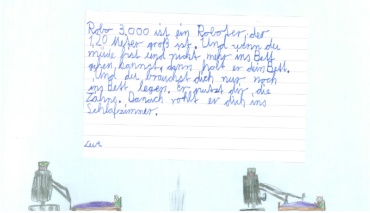 Robo 3.000 ist ein Roboter, der
1,20 Meter groß ist. Und wenn du
müde bist und nicht mehr ins Bett
gehen kannst, dann holt er dein Bett.
Und du brauchst dich nur noch
ins Bett legen. Er putzt dir die
Zähne. Danach rohlt er dich ins
Schlafzimmer.